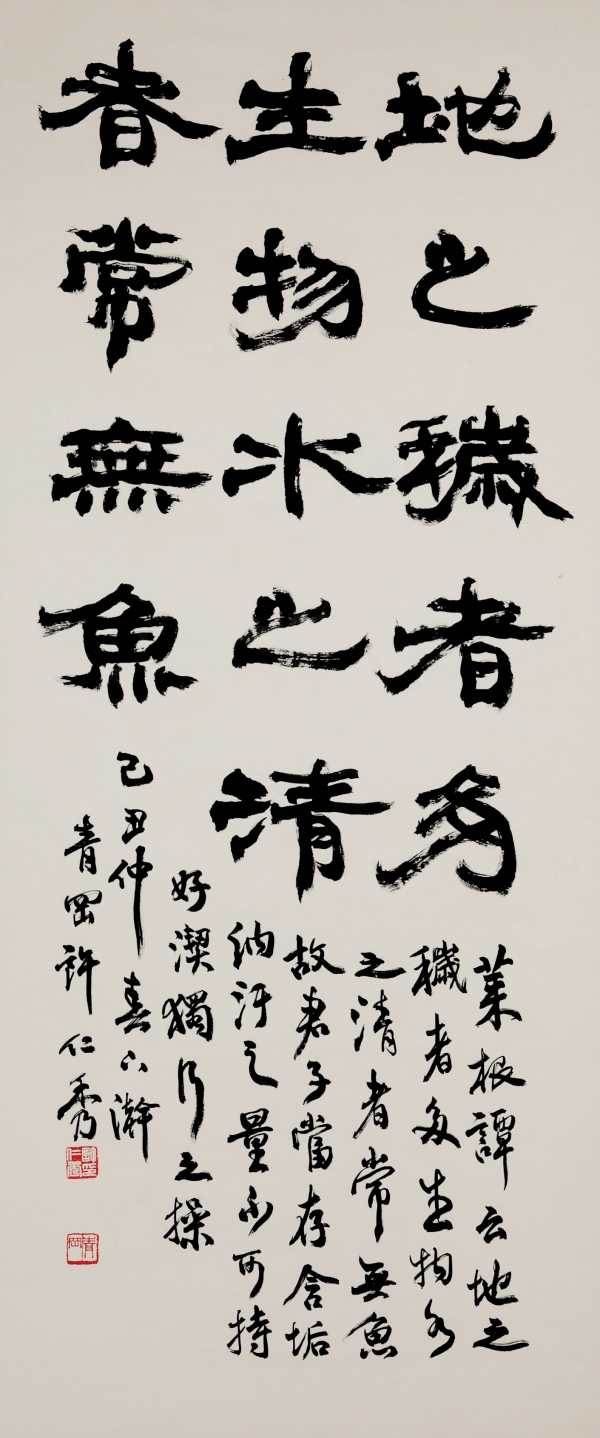 地之穢者多
生物水之清
者常無魚
菜根譚云地之
穢者多生物水
之清者常無魚
故君子當存含垢
納汙之量不可持
好潔獨行之操
己丑仲春下澣
青岡許仁秀
青岡